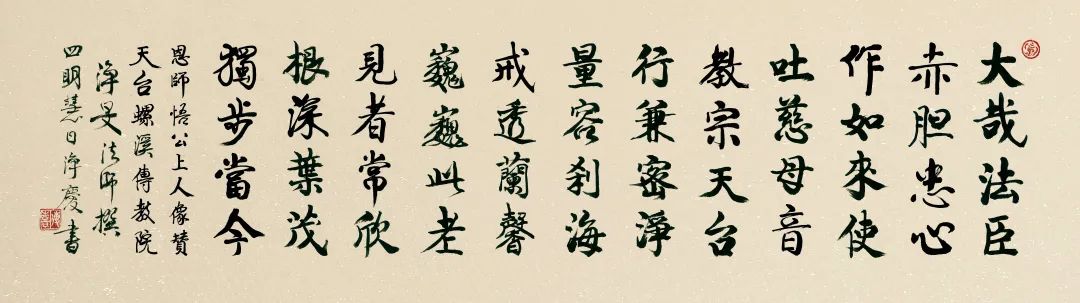 大哉法臣
赤胆忠心
作如來使
吐慈母音
教宗天台
行兼密淨
量容刹海
戒透蘭馨
巍巍此老
見者常欣
根深葉茂
獨步當今
恩師悟公上人像贊
天台螺溪傳教院
淨旻法師撰
四明慧日淨慶書